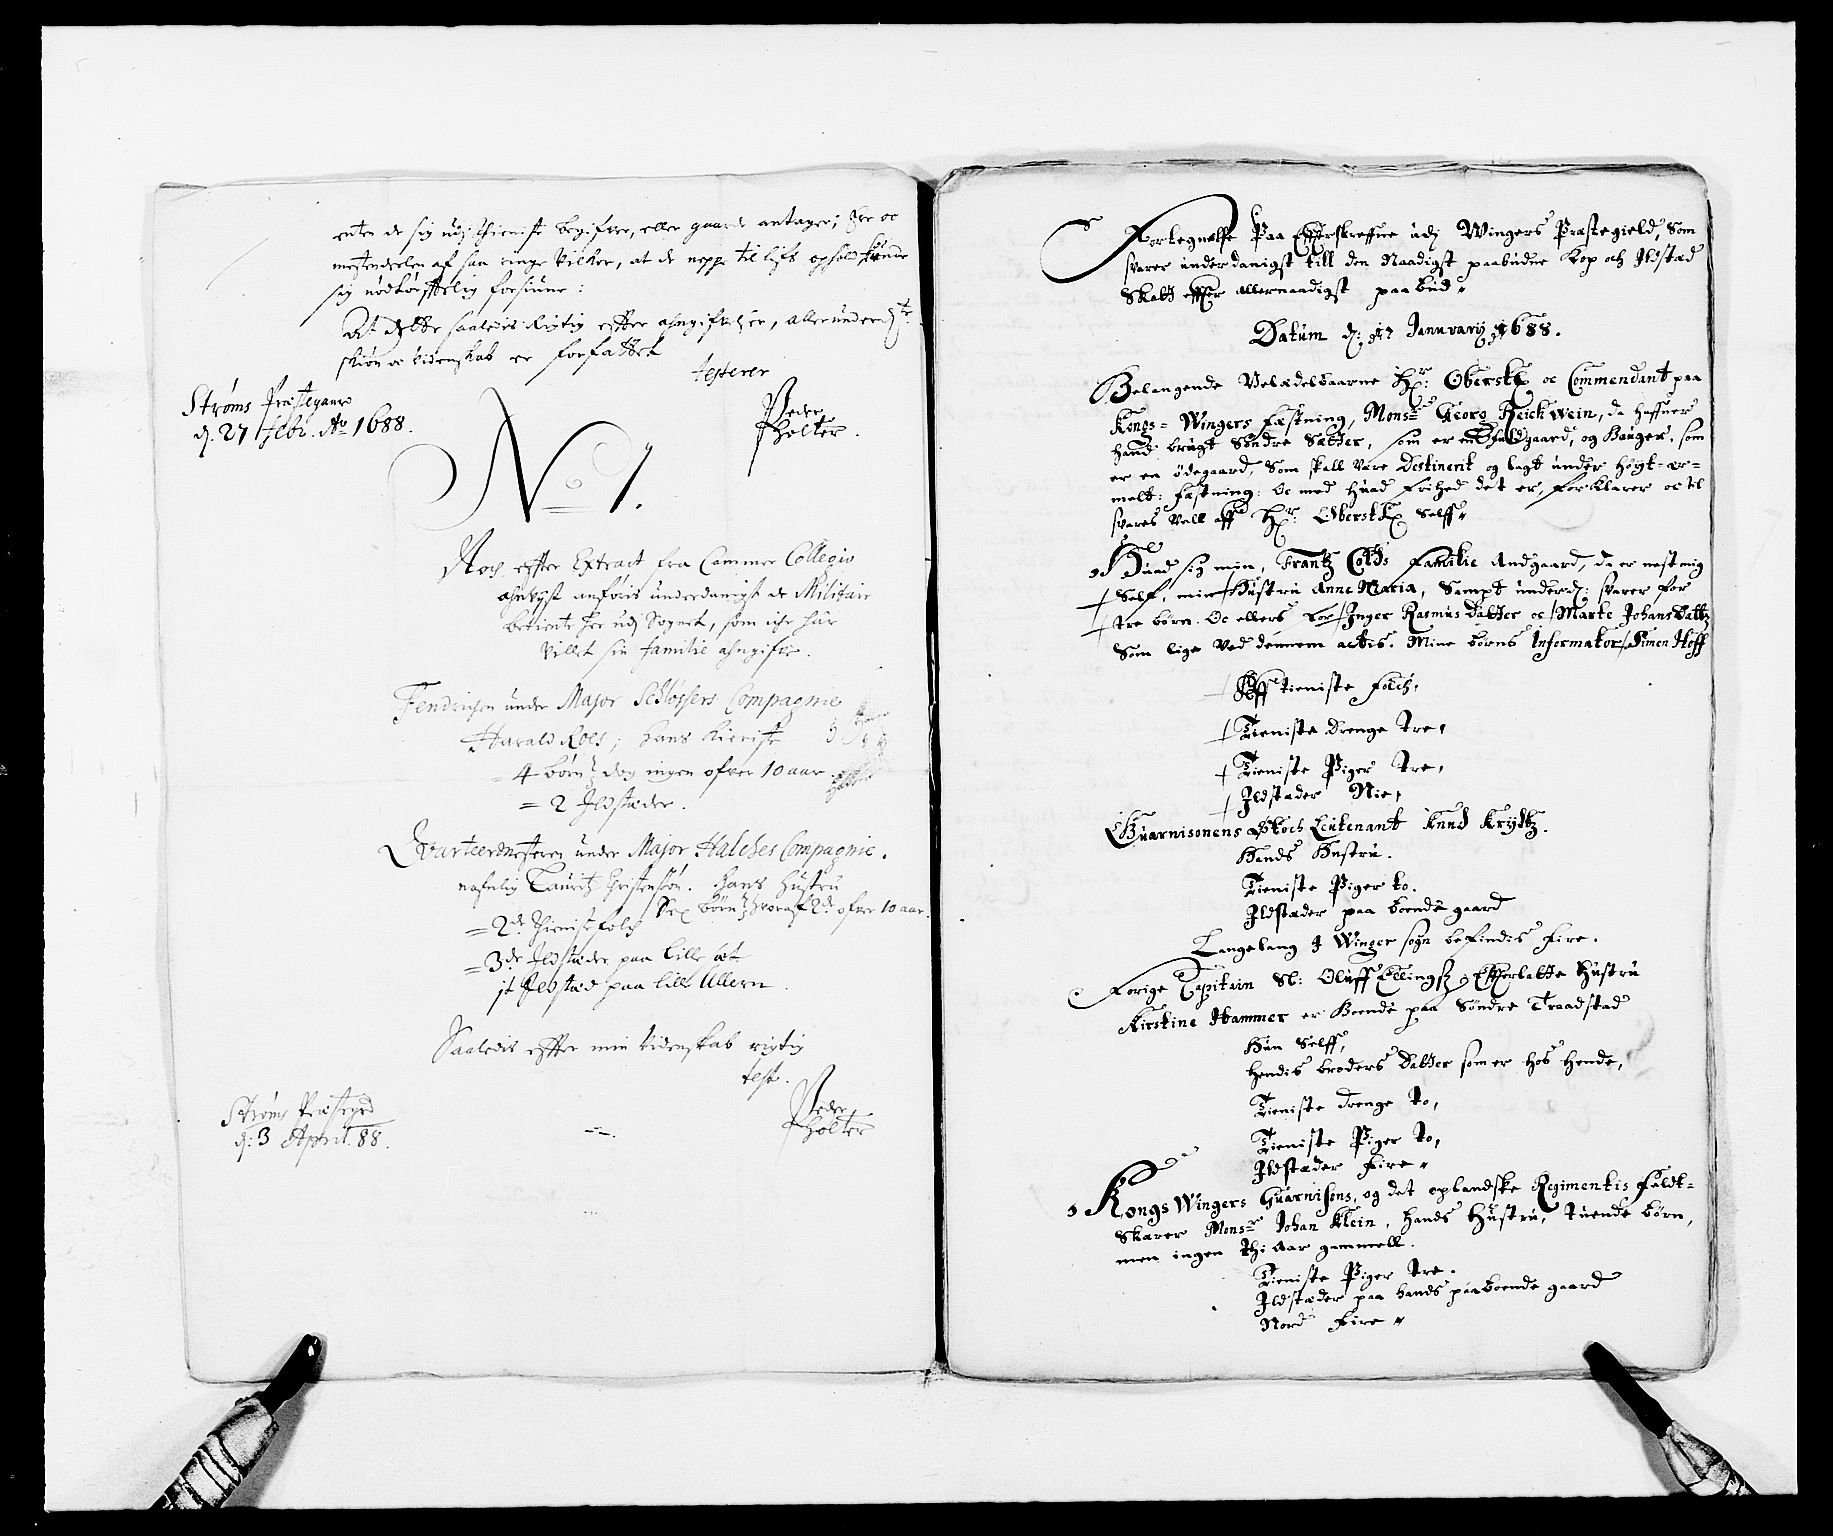 enten de sig udj thieniste begifver, eller gaarde antager; Ere oc
mestendeelen af saa ringe vilkor, at de neppe til lifs ophold kunde
sig nødtørfftelig forsiune:
At dette saaledis Rigtig effter angifvelser, allerunder
skiøn oc videnskab er forfattet
testerer
Strøms Præstegaard
d. 27 Febr. Ao 1688.
Peder
Holter.
No 1.
Noch effter Extract fra Cammer Collegio
anføris underdanigst de Militair
betiente her udj Sognet, som iche har
villet sin familie angifve.
Fendrichen under Major Schlössers Compagnie
Harald Roes; hans Kieriste
= 4 børn dog ingen ofver 10 aar
= 2 Jldstæder.
Qvarteermesteren under Major Halches Compagnie.
nafnlig Lauritz Christensøn. hans hustru
Sex børn hvoraf 2de ofver 10 aar.
= 2de Thienistefolch
= 3de Jldstæder paa Lille
jt Jldstæd paa lille Ullern.
Saaledis effter min videnskab rigtig
test.
Strøms Præstegrd
d: 3 April. 88.
Peder
Holter
Fortegnelse Paa Effterskreffne udj Wingers Præstegield, Som
svarer underdanigst till den Naadigst paabudne Kop och Jldsted
Skatt effter allernaadigst paabud
Datum d: 17 Januvarij 1688.
Belangende Velædelbaarne Hr: Oberst oc Commendant paa
Kongs = Wingers Fæstning, Monsr Georg Reichwein, da haffuer
hand brugt Søndre Sætter, som er en gaard, og Bauger, som
er en ødegaard, Som skall være Destinerit og lagt under høyt-er=
melt: Fæstning: Oc med huad Frihed det er, forklarer oc til
svares vell aff Hr: Oberst Selff
Huad sig min, Frantz Colds Familie Andgaard, da er nest mig
Self, min Hustru Anne Maria, Sampt underd: svarer for
tre børn. Oc ellers for Inger Rasmus Datter oc Marte Johans Datt
Som lige ved dennem actis. Mine børns Informator Simon Hoff
Aff tieniste Folch,
Tieniste Drenge tre,
Tieniste Piger tre,
Jldstæder Nie,
Guarnisonens Lieutenant Knud Krydtz.
Hands Hustru.
Tieniste Piger to.
Jldstæder paa boende gaard
Langelang J Winger sogn befindis Fire.
Forige Capitain Sl: Oluff Ellingsz Effterlatte Hustru
Kirstine Hammer er Boende paa Søndre Traadstad
Hun Selff,
hendis broders Datter som er hos hende,
Tieniste drenge to,
Tieniste Piger to,
Jldstæder Fire
Kongs Wingers Guarnisons, og det oplandske Regimentis Feldt=
Skærer Monsr Johan Klein, hands Hustru, tuende børn,
men ingen thi Aar gammell.
Tieniste Piger tre.
Jldstæder paa hands paaboende gaard
Nord Fire